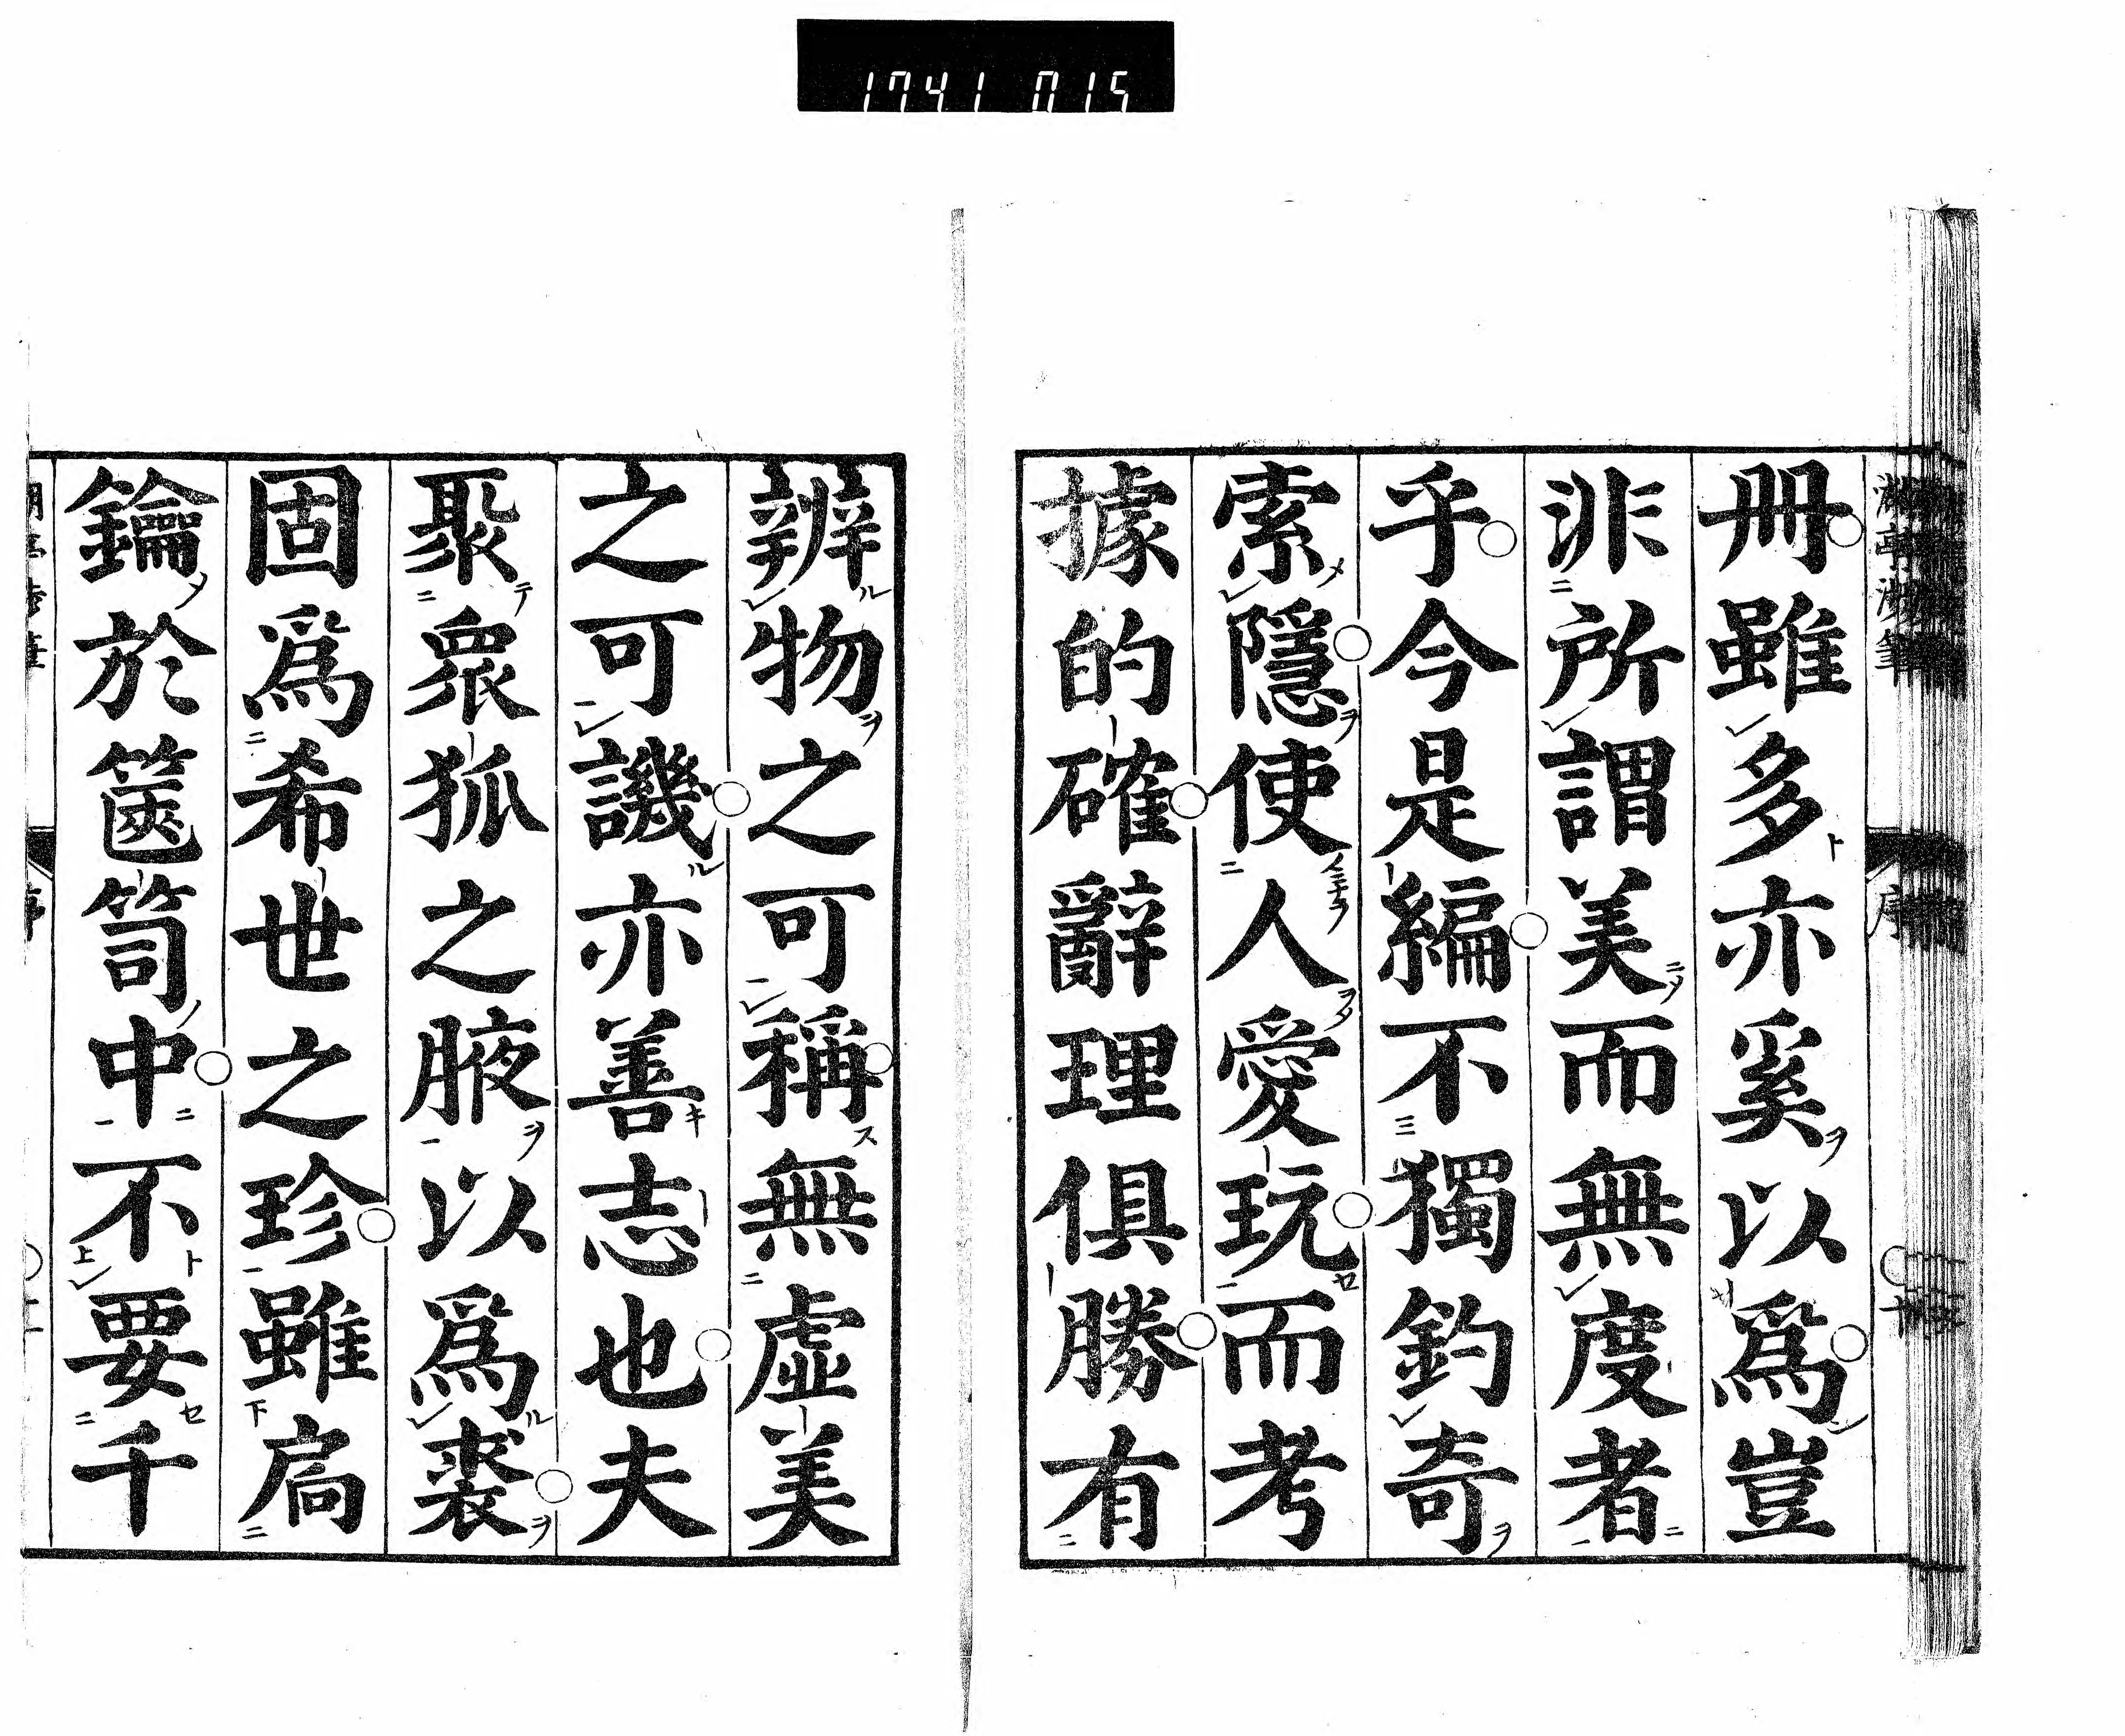 1741 015
冊雖多亦奚以爲豈
非所謂美而無度者
乎今是編不獨釣奇
索隱使人愛玩而考
據的確辭理俱勝有
辨物之可稱無虛美
之可譏亦善志也夫
聚眾狐之腋以爲裘
固爲希世之珍雖扃
鑰於篋笥中不要千